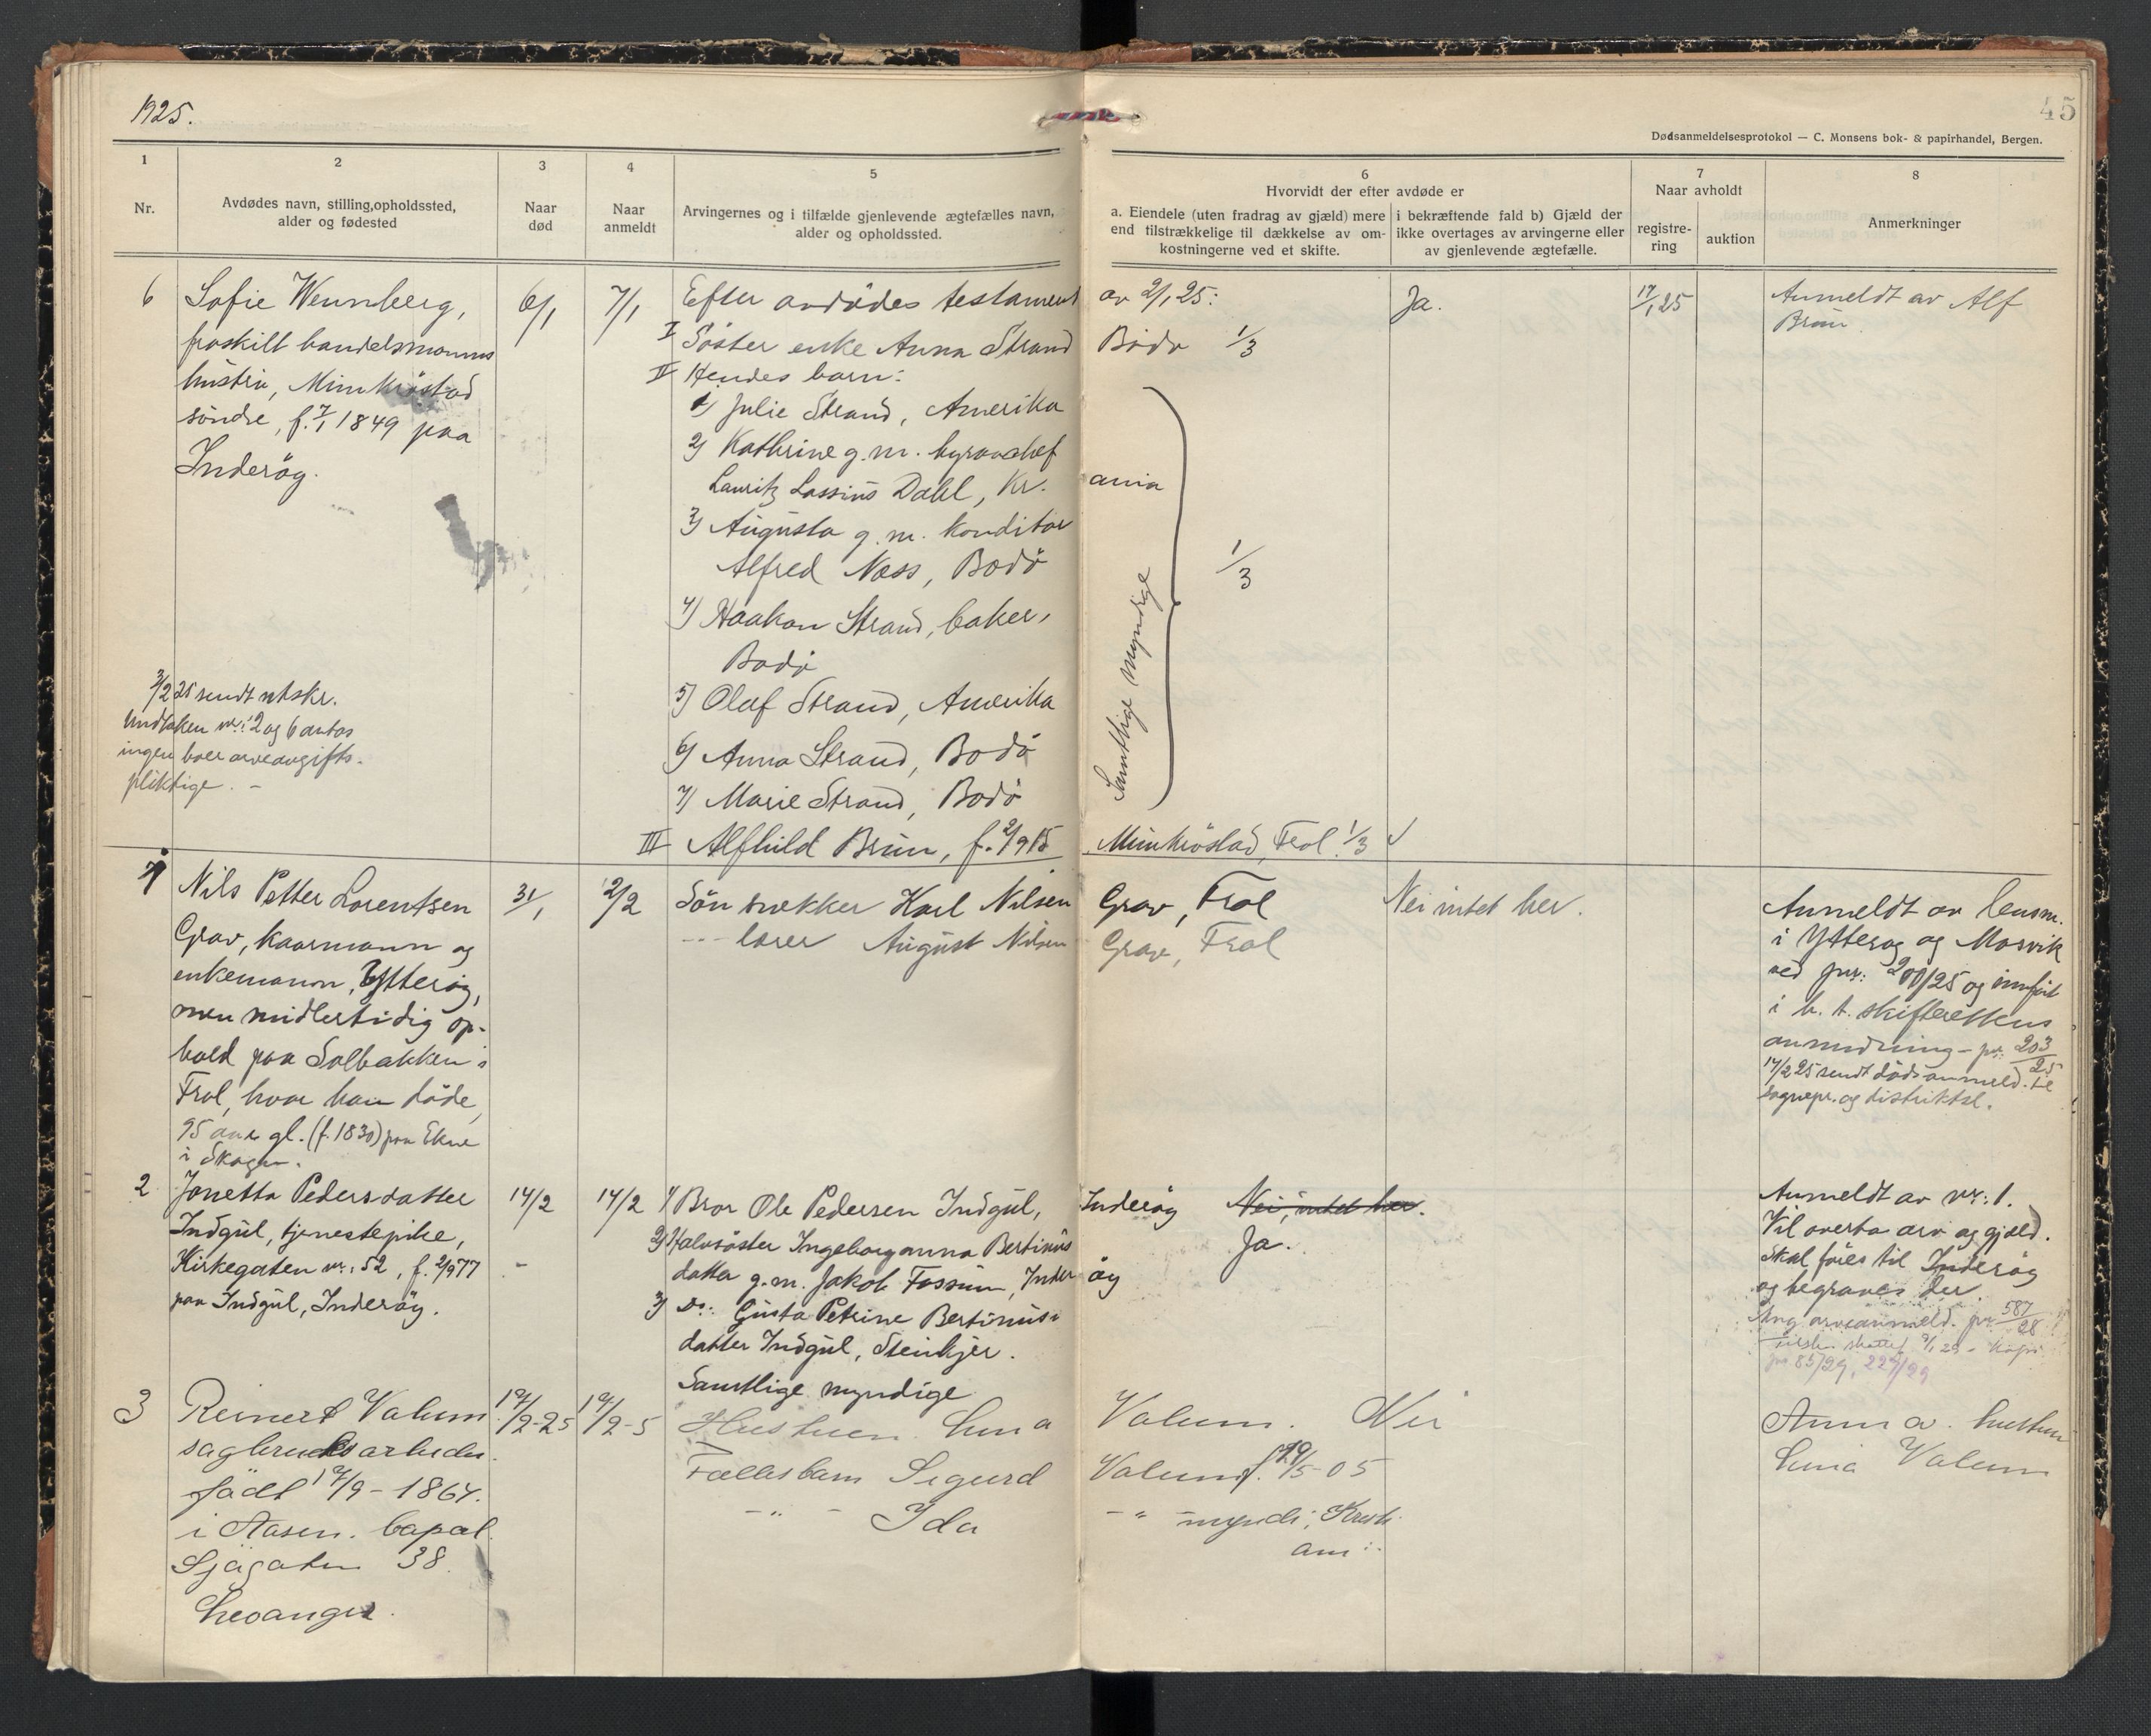 1925.
45
Dødsanmeldelsesprotokol — C. Monsens bok- & papirhandel, Bergen.
1
Nr.
2
Avdødes navn, stilling, opholdssted,
alder og fødested
3
Naar
død
4
Naar
anmeldt
5
Arvingernes og i tilfælde gjenlevende ægtefælles navn,
alder og opholdssted.
6
Hvorvidt der efter avdøde er
a. Eiendele (uten fradrag av gjæld) mere
end tilstrækkelige til dækkelse av om-
kostningerne ved et skifte.
i bekræftende fald b) Gjæld der
ikke overtages av arvingerne eller
av gjenlevende ægtefælle.
7
Naar avholdt
registre-
ring
auktion
8
Anmerkninger
6
Sofie Wennberg,
fraskilt handelsmanns
hustru, Minkröstad
söndre, f. 7/1 1849 paa
Inderöy.
6/1
7/1
Efter avdödes testament av 2/1 25:
I Söster enke Anna Strand Bodö 1/3
II Hendes barn:
1) Julie Strand, Amerika
2) Kathrine g.m. byraachef
Lauritz Lassius Dahl, Kr.ania
3) Augusta g.m. konditor
Alfred Næss, Bodö
4) Haakon Strand, baker,
Bodö
5) Olaf Strand, Amerika
6) Anna Strand, Bodö
7) Marie Strand, Bodö
Samtlige myndige
1/3
III Alfhild Brun, f. 2/9 15 Minkröstad, Frol. 1/3
Ja.
17/1 25
Anmeldt av Alf
Brun.
3/2 25 sendt utskr.
Undtaken nr: 2 og 6 antas
ingen boer arveavgifts-
pliktige. -
1
Nils Petter Lorentsen
Grav, kaarmann og
enkemann, Ytteröy,
men midlertidig op-
hold paa Solbakken i
Frol, hvor han döde,
95 aar gl. (f. 1830) paa Ekne
i Skogn.
31/1
2/2
Sön snekker Karl Nilsen Grav, Frol
--- lærer August Nilsen Grav, Frol
Nei intet her.
Anmeldt av lensm.
i Ytteröy og Mosvik
ved jnr: 200/25 og innfört
i h. t. skifterettens
anmodning - jnr: 203/25
17/2 25 sendt dödsanmeld. til
sognepr. og distriktsl.
2
Jonetta Pedersdatter
Indgul, tjenestepike,
Kirkegaten nr: 52, f. 2/9 77
paa Indgul, Inderöy.
14/2
14/2
1) Bror Ole Pedersen Indgul, Inderöy
2) Halvsöster Ingeborganna Bertinus
datter g.m. Jakob Fossum, Inderöy
3) Do: Gusta Petrine Bertinus-
datter Indgul, Steinkjer.
Samtlige myndige
Nei, intet her.
Ja.
Anmeldt av nr: 1.
Vil overta arv og gjæld.
Skal föres til Inderöy
og begraves der.
Ang. arveanmeld. jnr 587/28
jnr 85/29, 227/29
3
Reinert Valum
sagbruksarbeider
födt 17/9 - 1864.
i Aasen. Capal.
Sjögaten 38.
Levanger.
19/2-25
19/2-5
Hustruen Lina Valum.
Fællesbarn Sigurd Valum f. 19/5-05
-"- Ida -"- myndi; Kristi-
ani:.
Nei
Anm a. hustruen
Lina Valum